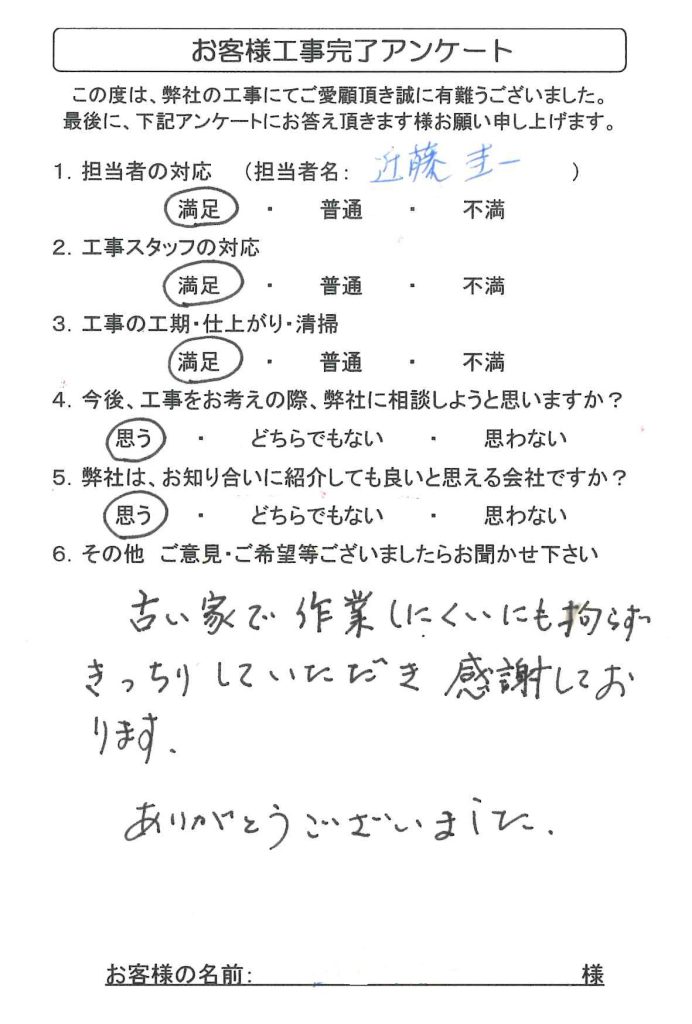 お客様工事完了アンケート
この度は、弊社の工事にてご愛顧頂き誠に有難うございました。
最後に、下記アンケートにお答え頂きます様お願い申し上げます。
1. 担当者の対応 （担当者名： 近藤 圭一 ）
満足 ・ 普通 ・ 不満
2. 工事スタッフの対応
満足 ・ 普通 ・ 不満
3. 工事の工期・仕上がり・清掃
満足 ・ 普通 ・ 不満
4. 今後、工事をお考えの際、弊社に相談しようと思いますか？
思う ・ どちらでもない ・ 思わない
5. 弊社は、お知り合いに紹介しても良いと思える会社ですか？
思う ・ どちらでもない ・ 思わない
6. その他 ご意見・ご希望等ございましたらお聞かせ下さい
古い家で 作業しにくいにも拘らず
きっちりしていただき 感謝してお
ります.
ありがとうございました.
お客様の名前： 様